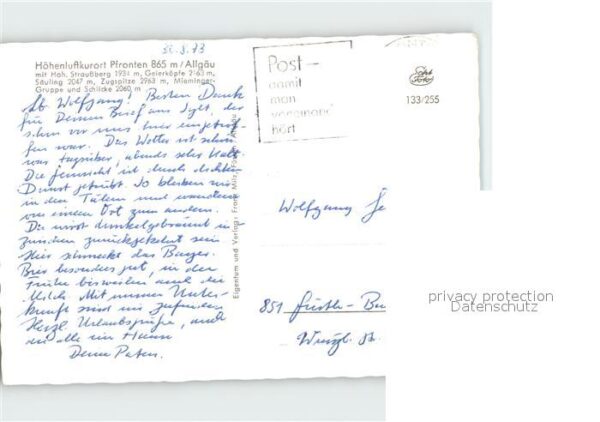 30.8.73
Höhenluftkurort Pfronten 865 m/Allgäu
mit Hah. Straußberg 1934 m, Geierköpfe 2163 m,
Säuling 2047 m, Zugspitze 2963 m, Mieminger-
Gruppe und Schlicke 2060 m
Lb. Wolfgang! Besten Dank
für Deinen Brief aus Sylt, der
schon vor uns hier eingetrof-
fen war. Das Wetter ist schön
was tagsüber, abends sehr kalt.
Die Fernsicht ist durch
Dunst getrübt. So bleiben wir
in den Tälern und wandern
von einem Ort zum andern.
Du wirst dunkelgebräunt in
zwischen zurückgekehrt sein
Hier schmeckt das
Bier besonders gut, in der
Frühe bisweilen auch die
Milch. Mit unserer Unter-
kunft sind wir zufrieden
Herzl. Urlaubsgrüße, auch
an alle im Hause
Deine Paten.
Eigentum und Verlag: Franz Milz, Füssen/Allgäu
Post-
damit
man
voneinander
hört
Echt
Foto
133/255
Wolfgang
851 Fürth-
Würzb. Str.
privacy protection
Datenschutz